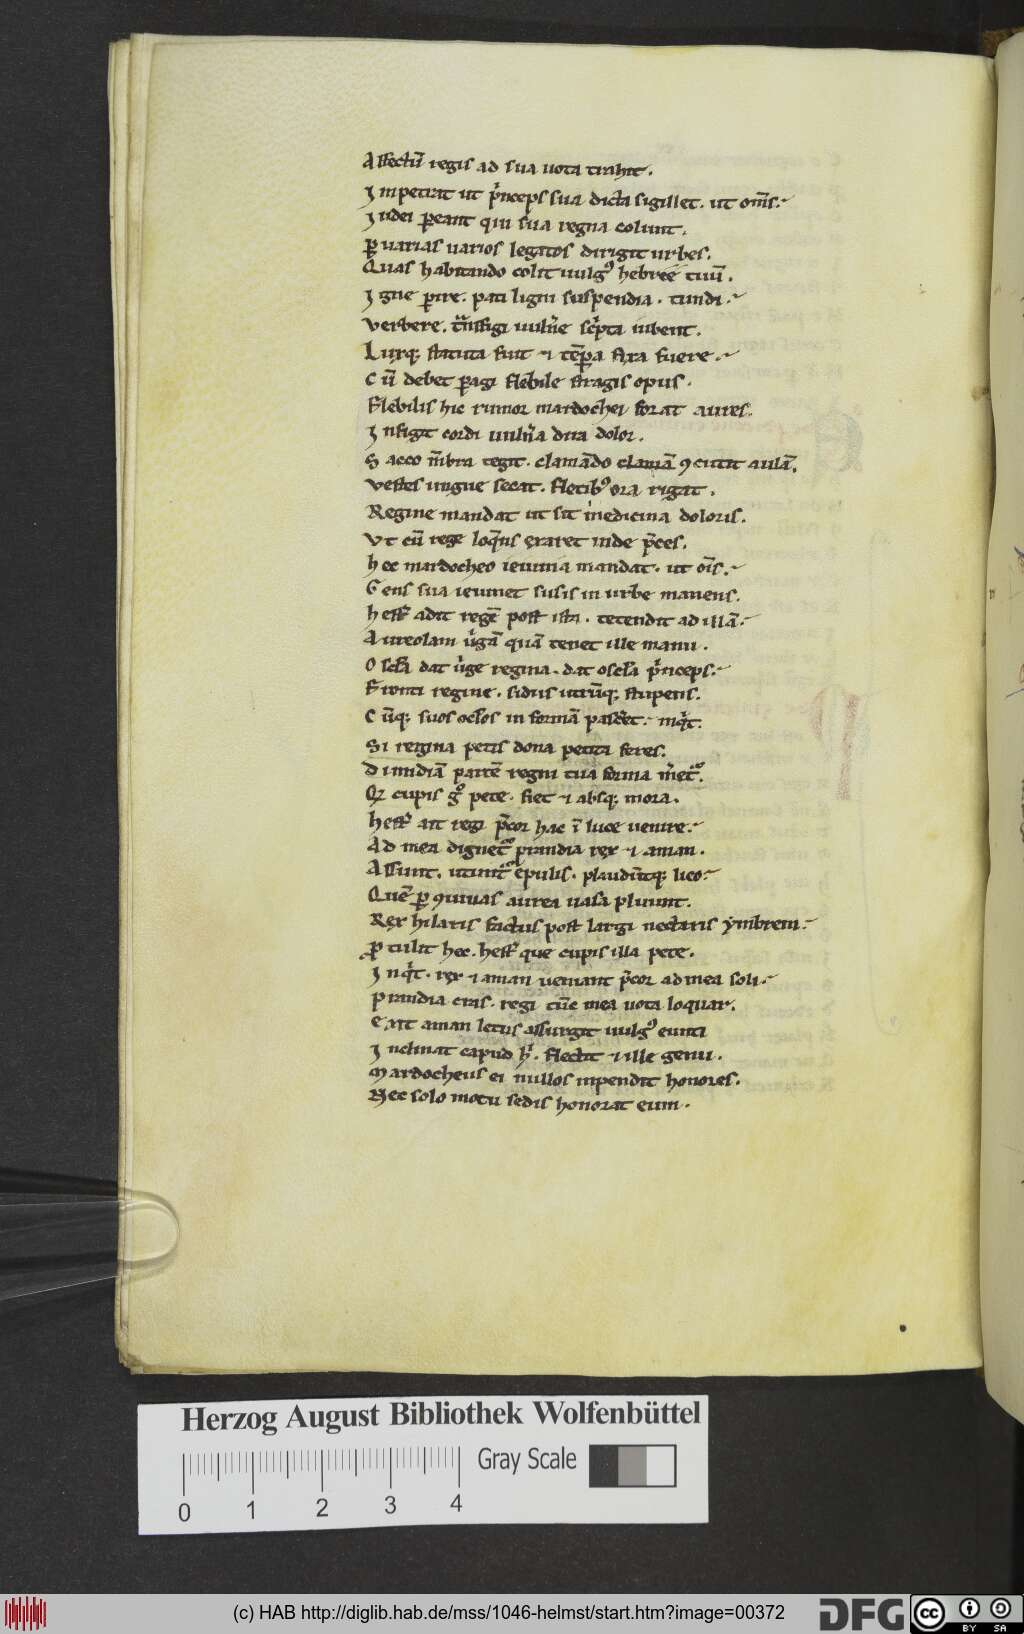 Affectū regis ad sua uota trahit.
Inpetrat ut pͥnceps sua dicta sigillet. ut om̄s.
Iudei ꝑeant qui sua regna colunt.
Ꝑ uarias uarios legatos dirigit urbes.
Quas habitando colit uulgꝰ hebree tuū.
Igne ꝑire. pati ligni suspendia. tundi.
Verbere. tͣnsfigi uulṅe sc͛pta iubent.
Luxq; statuta fuit ⁊ tēpora fixa fuere.
Cū debet ꝑagi flebile stragis opus.
Flebilis hic rumor mardochei forat aures.
Infigit cordi uulṅa dira dolor.
Sacco mēbra tegit. clamādo clamā ꝯcutit aulā.
Vestes ungue secat. fletibꝰ ora rigat.
Regine mandat ut sit medicina doloris.
Vt cū rege loq̄ns exaret inde p̄ces.
Hec mardocheo ieiunia mandat. ut oīs.
Gens sua ieiunet susis in urbe manens.
Hesť adit regē post ista. tetendit ad illā.
Aureolam uͥgā quā tenet ille manu.
Oscła dat uͥge regina. dat oscła pͥnceps.
Fronti regine. sidus utrūq; stupens.
Cūq; suos oclos in formā pasceret. inqͥt.
Si regina petis dona petita feres.
Dimidiā partē regni tua forma meretᷣ.
Qꝫ cupis gͦ pete. fiet ⁊ absq; mora.
Hesť ait regi p̄cor hac ī luce uenire.
Ad mea dignetᷣ prandia rex ⁊ aman.
Assunt. utuntᷣ epulis. plauduntq; lieo.
Quē ꝑ ꝯuiuas aurea uasa pluunt.
Rex hilaris factus post largi nectaris ymbrem.
Ꝓtulit hec. hesť que cupis illa pete.
Inqͥt. rex ⁊ aman ueniant p̄cor ad mea soli.
Prandia cras. regi tūc mea uota loquar.
Exit aman letus assurgit uulgꝰ eunti
Inclinat capud h̊. flectit ⁊ ille genu.
Mardocheus ei nullos inpendit honores.
Nec solo motu sedis honorat eum.
Herzog August Bibliothek Wolfenbüttel
Gray Scale
0 1 2 3 4
(c) HAB http://diglib.hab.de/mss/1046-helmst/start.htm?image=00372
DFG
cc BY SA